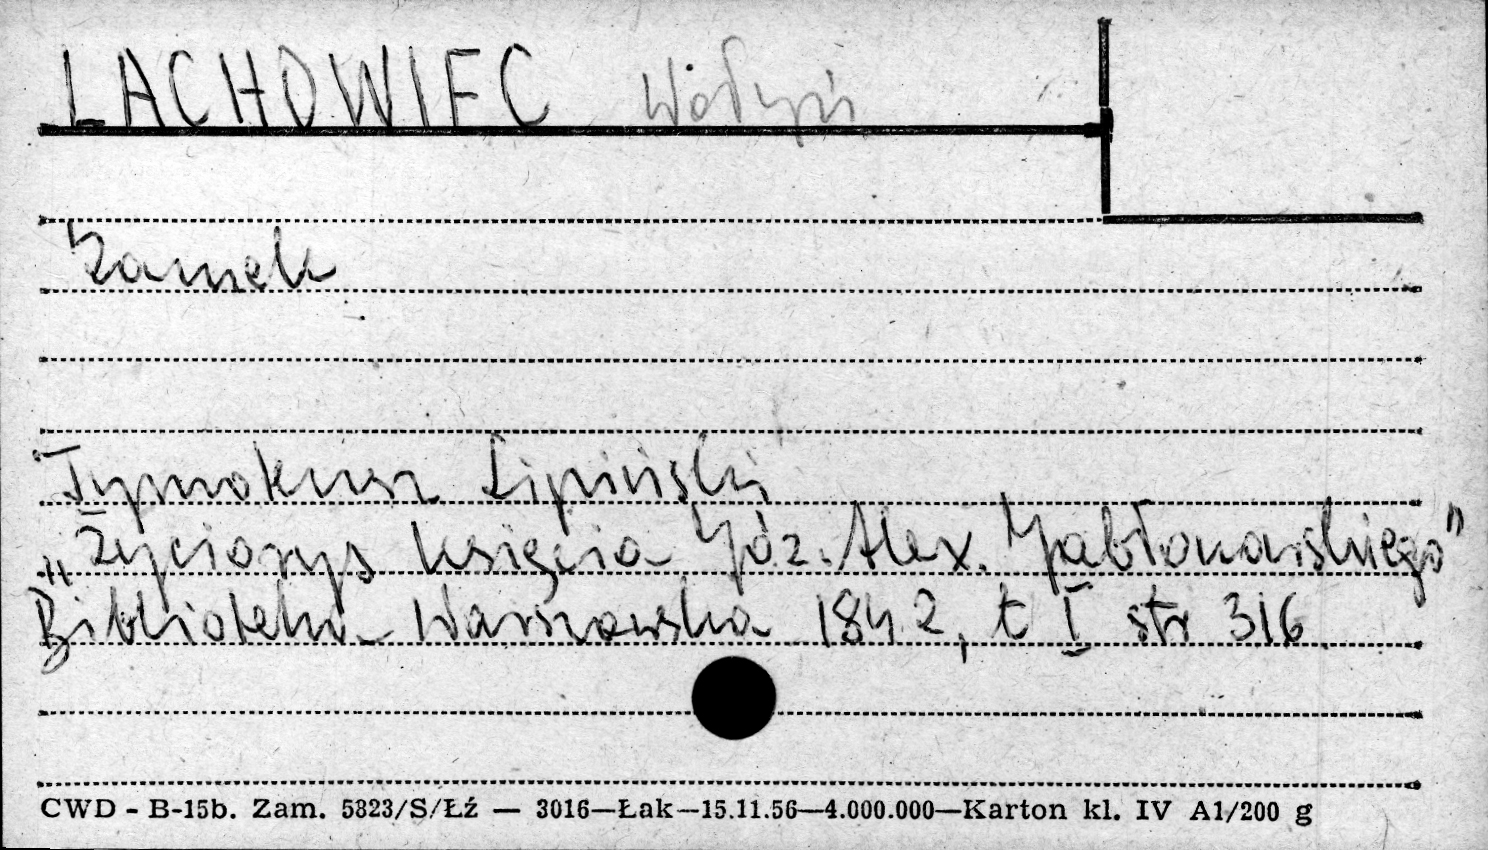 LACHOWIEC Wołyń
Zamek
Tymoteusz Lipiński
„Życiorys księcia Józ. Alex. Jabłonowskiego"
Biblioteka Warszawska 1842, t I str 316
CWD - B-15b. Zam. 5823/S/Łź — 3016—Łak—15.11.56—4.000.000—Karton kl. IV A1/200 g